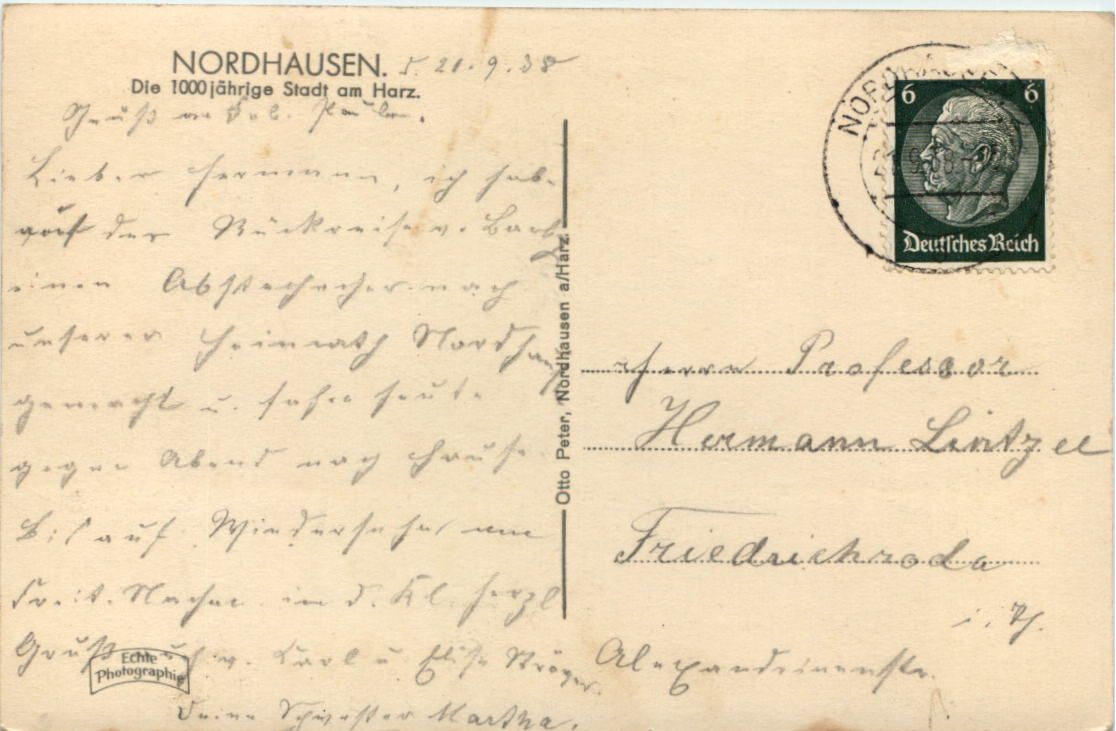 NORDHAUSEN. d. 21.9.38
Die 1000jährige Stadt am Harz.
Gruß an Frl.
Lieber Hermann, ich habe
auf der Rückreise v.
einen Abstecher nach
unserer Heimath Nordhausen
gemacht u. fahre heute
gegen Abend nach Hause.
Bis auf Wiedersehen am
Freit. Nachm. in d. Kl. herzl
Gruß auch v. Karl u. Elise
Deine Schwester Martha.
Echte
Photographie
Otto Peter, Nordhausen a/Harz.
NORDHAUSEN
6 6
Deutsches Reich
Herrn Professor
Hermann Lintzel
Friedrichroda
i. Th.
Alexandrinenstr.